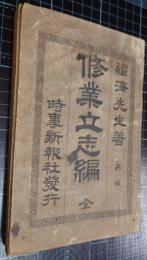 福澤先生著
再版
修業立志編 全
時事新報社發行